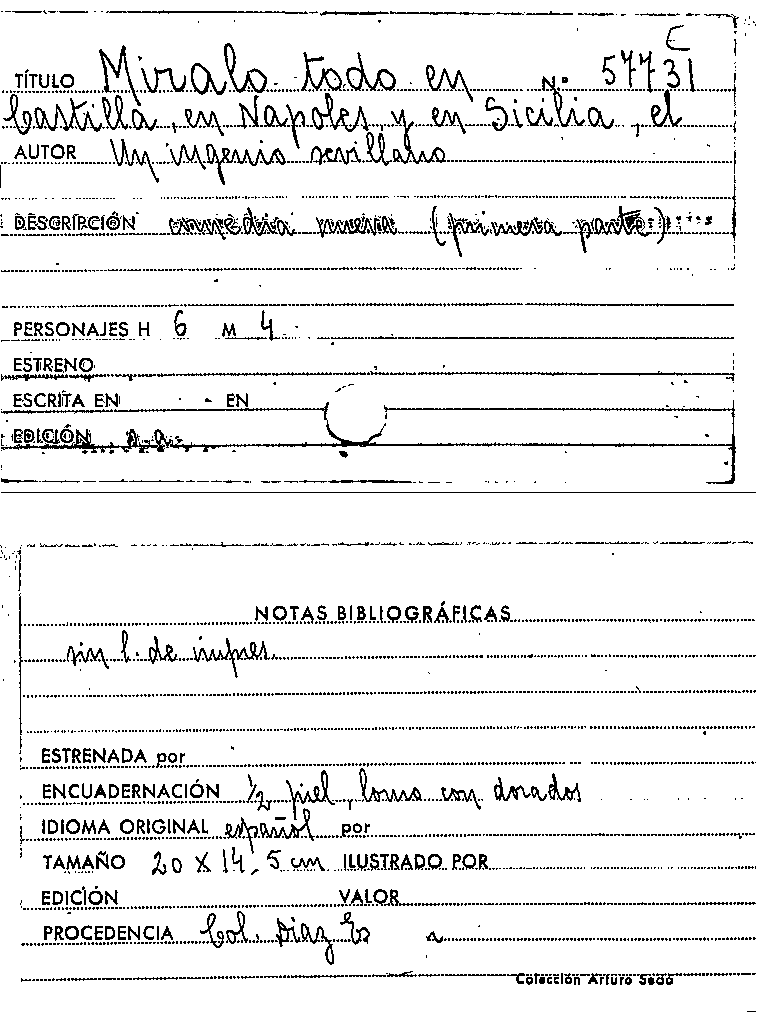 C
TÍTULO Miralo todo en Nº 57731
Castilla, en Napoles y en Sicilia, el
AUTOR Un ingenio sevillano
DESCRIPCIÓN comedia nueva (primera parte)
PERSONAJES H 6 M 4
ESTRENO
ESCRITA EN - EN
EDICIÓN s.a.
NOTAS BIBLIOGRÁFICAS
sin l. de impres.
ESTRENADA por
ENCUADERNACIÓN 1/2 piel, lomo con dorados
IDIOMA ORIGINAL español por
TAMAÑO 20 X 14,5 cm ILUSTRADO POR
EDICIÓN VALOR
PROCEDENCIA Col. Diaz
Colección Arturo Sedó